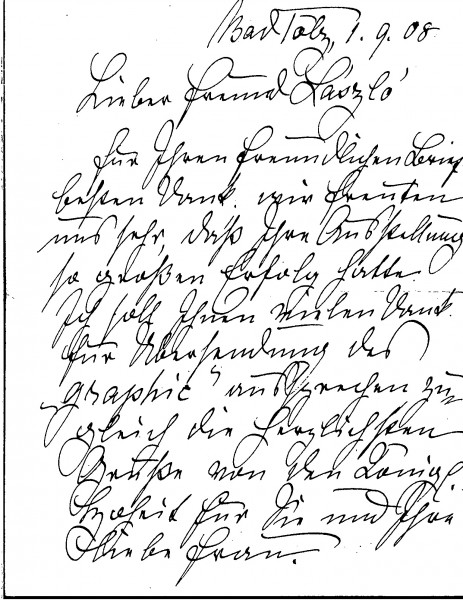 Bad Tölz, 1. 9. 08
Lieber Freund László
Für Ihren freundlichen Brief
besten Dank. wir freuten
uns sehr, daß Ihre Ausstellung
so großen Erfolg hatte.
Ich soll Ihnen vielen Dank
für Übersendung des
„graphic“ aussprechen zu-
gleich die herzlichsten
Grüße von den Königl.
Hoheit für Sie und Ihre
liebe Frau.